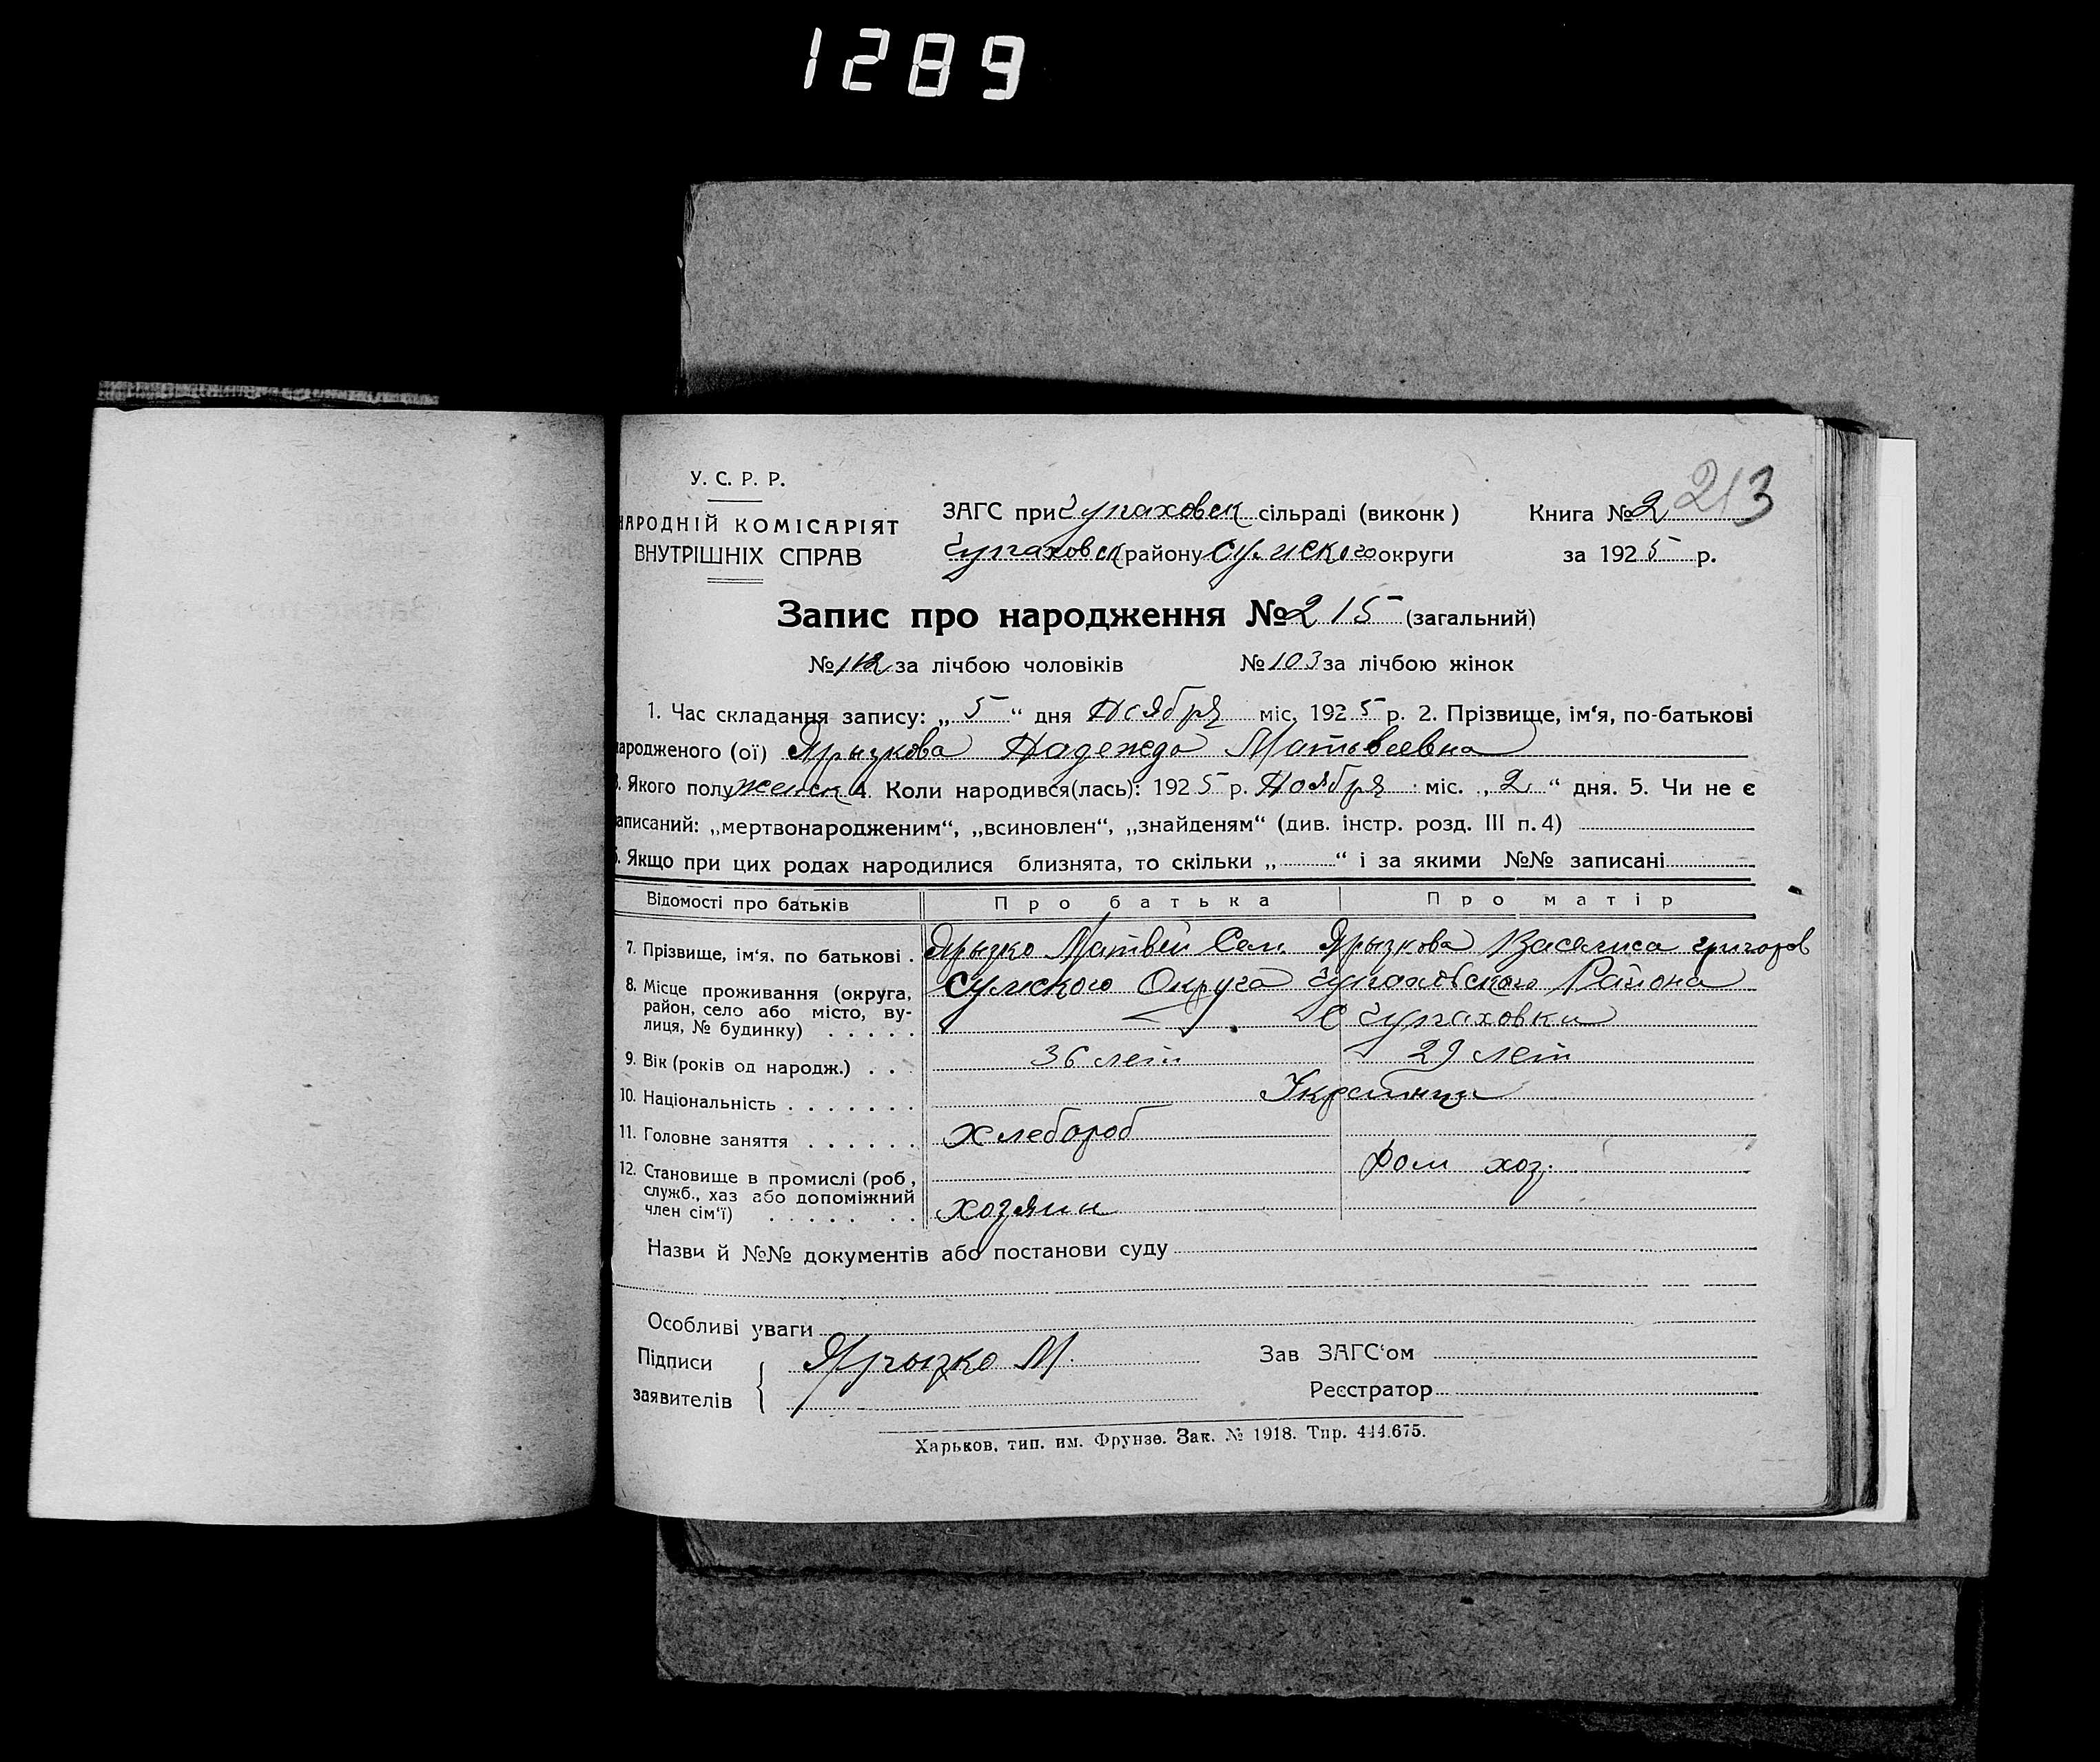 1289
213
У. С. Р. Р.
НАРОДНІЙ КОМІСАРІЯТ
ВНУТРІШНІХ СПРАВ
ЗАГС при Чупаховск сільраді (виконк)
Чупаховск району Сумского округи
Книга № 2
за 1925 р.
Запис про народження № 215 (загальний)
№ 112 за лічбою чоловіків № 103 за лічбою жінок
1. Час складання запису: „5“ дня Ноября міс. 1925 р. 2. Прізвище, ім‘я, по-батькові
народженого (ої) Ярызкова Надежда Матвеевна
3. Якого полу женск 4. Коли народився(лась): 1925 р. Ноября міс. „2“ дня. 5. Чи не є
записаний: „мертвонародженим“, „всиновлен“, „знайденям“ (див. інстр. розд. III п. 4)
6. Якщо при цих родах народилися близнята, то скільки „ “ і за якими №№ записані
Відомості про батьків Про батька Про матір
7. Прізвище, ім‘я, по батькові . Ярызко Матвей Сем. Ярызкова Василиса григоров
8. Місце проживання (округа, Сумского Округа Чупаховского Района
район, село або місто, ву-
лиця, № будинку) . . . . . С Чупаховки
9. Вік (років од народж.) . . . 36 лет 29 лет
10. Національність . . . . . . . Украинцы
11. Головне заняття . . . . . . Хлебороб
Дом хоз.
12. Становище в промислі (роб,
служб., хаз або допоміжний
член сім‘ї) . . . . . . . хозяин
Назви й №№ документів або постанови суду
Особливі уваги
Підписи
заявителів
Ярызко М.
Зав ЗАГС‘ом
Реєстратор
Харьков, тип. им. Фрунзе. Зак. № 1918. Тир. 444.675.